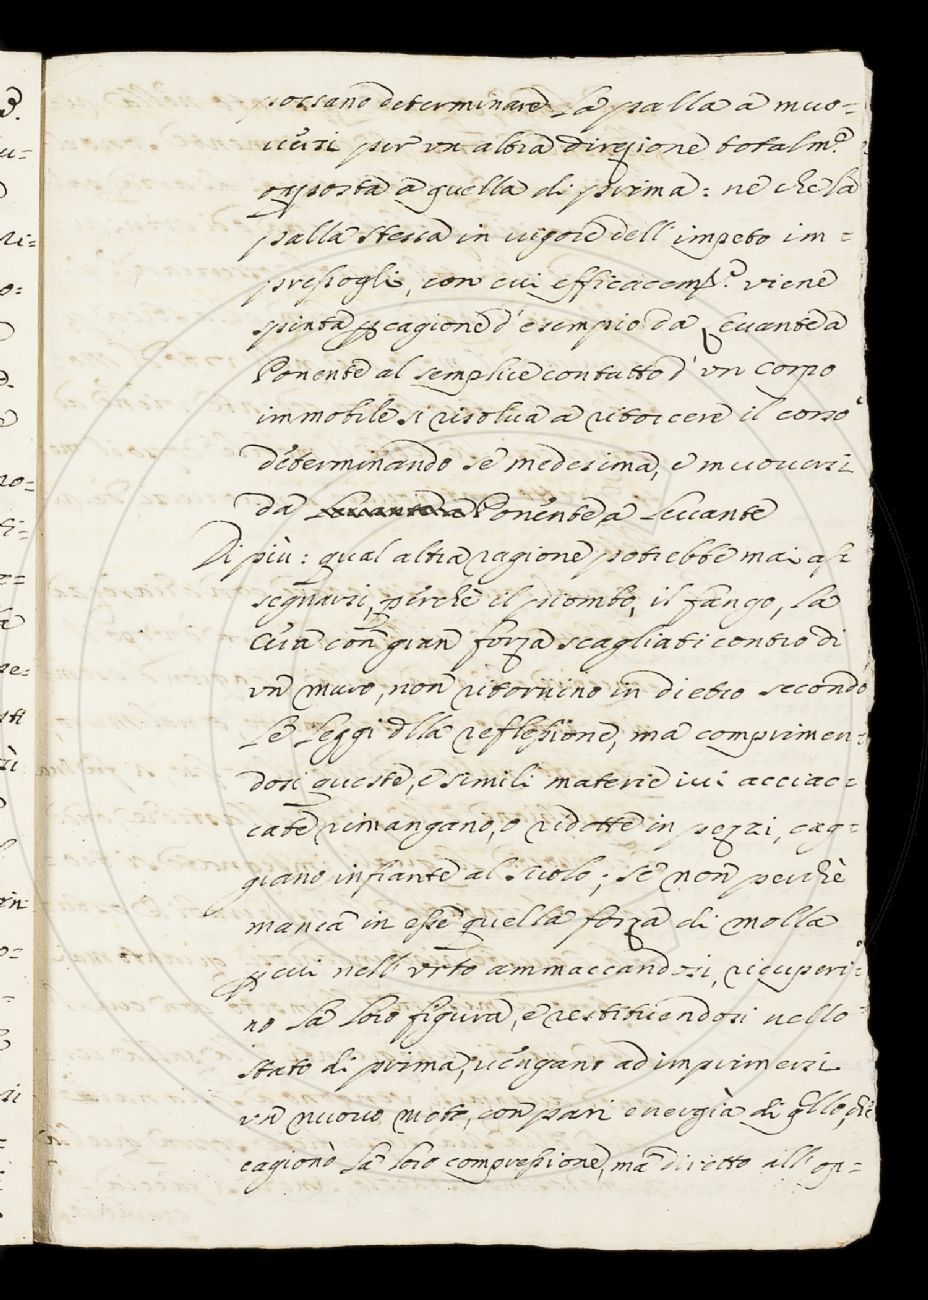 possano determinare la palla a muo=
uersi per un altra direzione totalm.e
opposta a quella di prima: ne che la
palla stessa in uigore dell' impeto im=
pressogli, con cui efficacem.te viene
spinta p cagione d' esempio da Leuante a
Ponente al semplice contatto d' vn corpo
immobile si risolua a ritorcere il corso
determinando se medesima, e muouersi
da Leuante a Ponente, a Leuante
Di più: qual altra ragione potrebbe mai as=
segnarsi, perche il piombo, il fango, la
Cera con gran forza scagliati contro di
vn muro, non ritornino in dietro secondo
le leggi dlla reflessione, ma comprimen=
dosi queste, e simili materie iui acciac=
cate rimangano, o ridotte in pezzi, cag=
giano infrante al suolo; se non perchè
manca in esse quella forza di molla
p cui nell' vrto ammaccandosi, ricuperi=
no la loro figura, e restituendosi nello
stato di prima, uengano ad imprimersi
vn nuouo moto, con pari energìa di qllo, che
cagionò la loro compressione, ma diretto all' op=